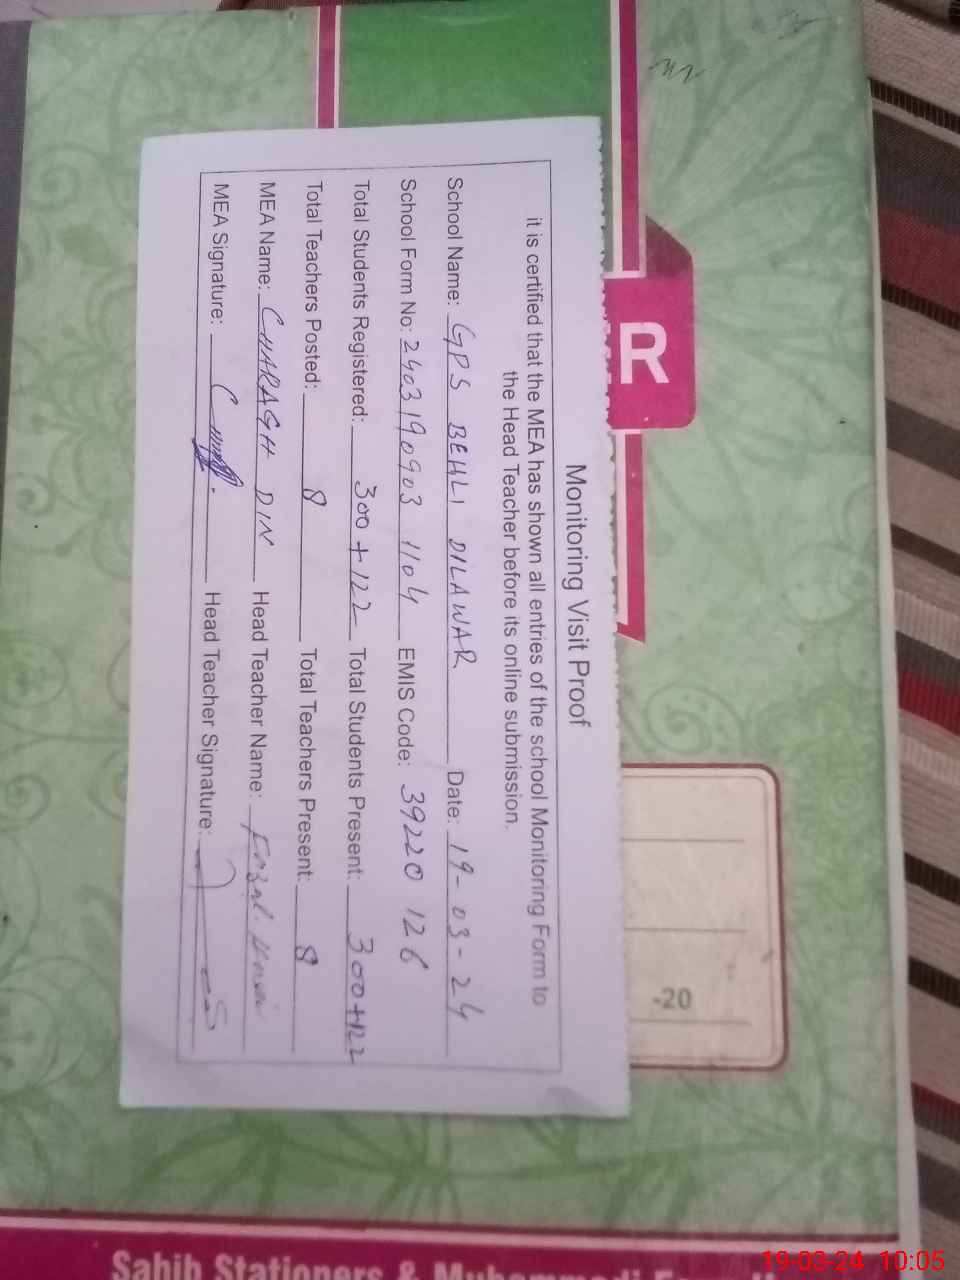 Monitoring Visit Proof
it is certified that the MEA has shown all entries of the school Monitoring Form to
the Head Teacher before its online submission.
School Name: GPS BEHLI DILAWAR Date: 19-03-24
School Form No: 2403190903 1104 EMIS Code: 39220 126
Total Students Registered: 300+122 Total Students Present: 300+122
Total Teachers Posted: 8 Total Teachers Present: 8
MEA Name: CHARAGH DIN Head Teacher Name:
MEA Signature: Head Teacher Signature:
R
-20
Sahib Stationers &
19-03-24 10:05